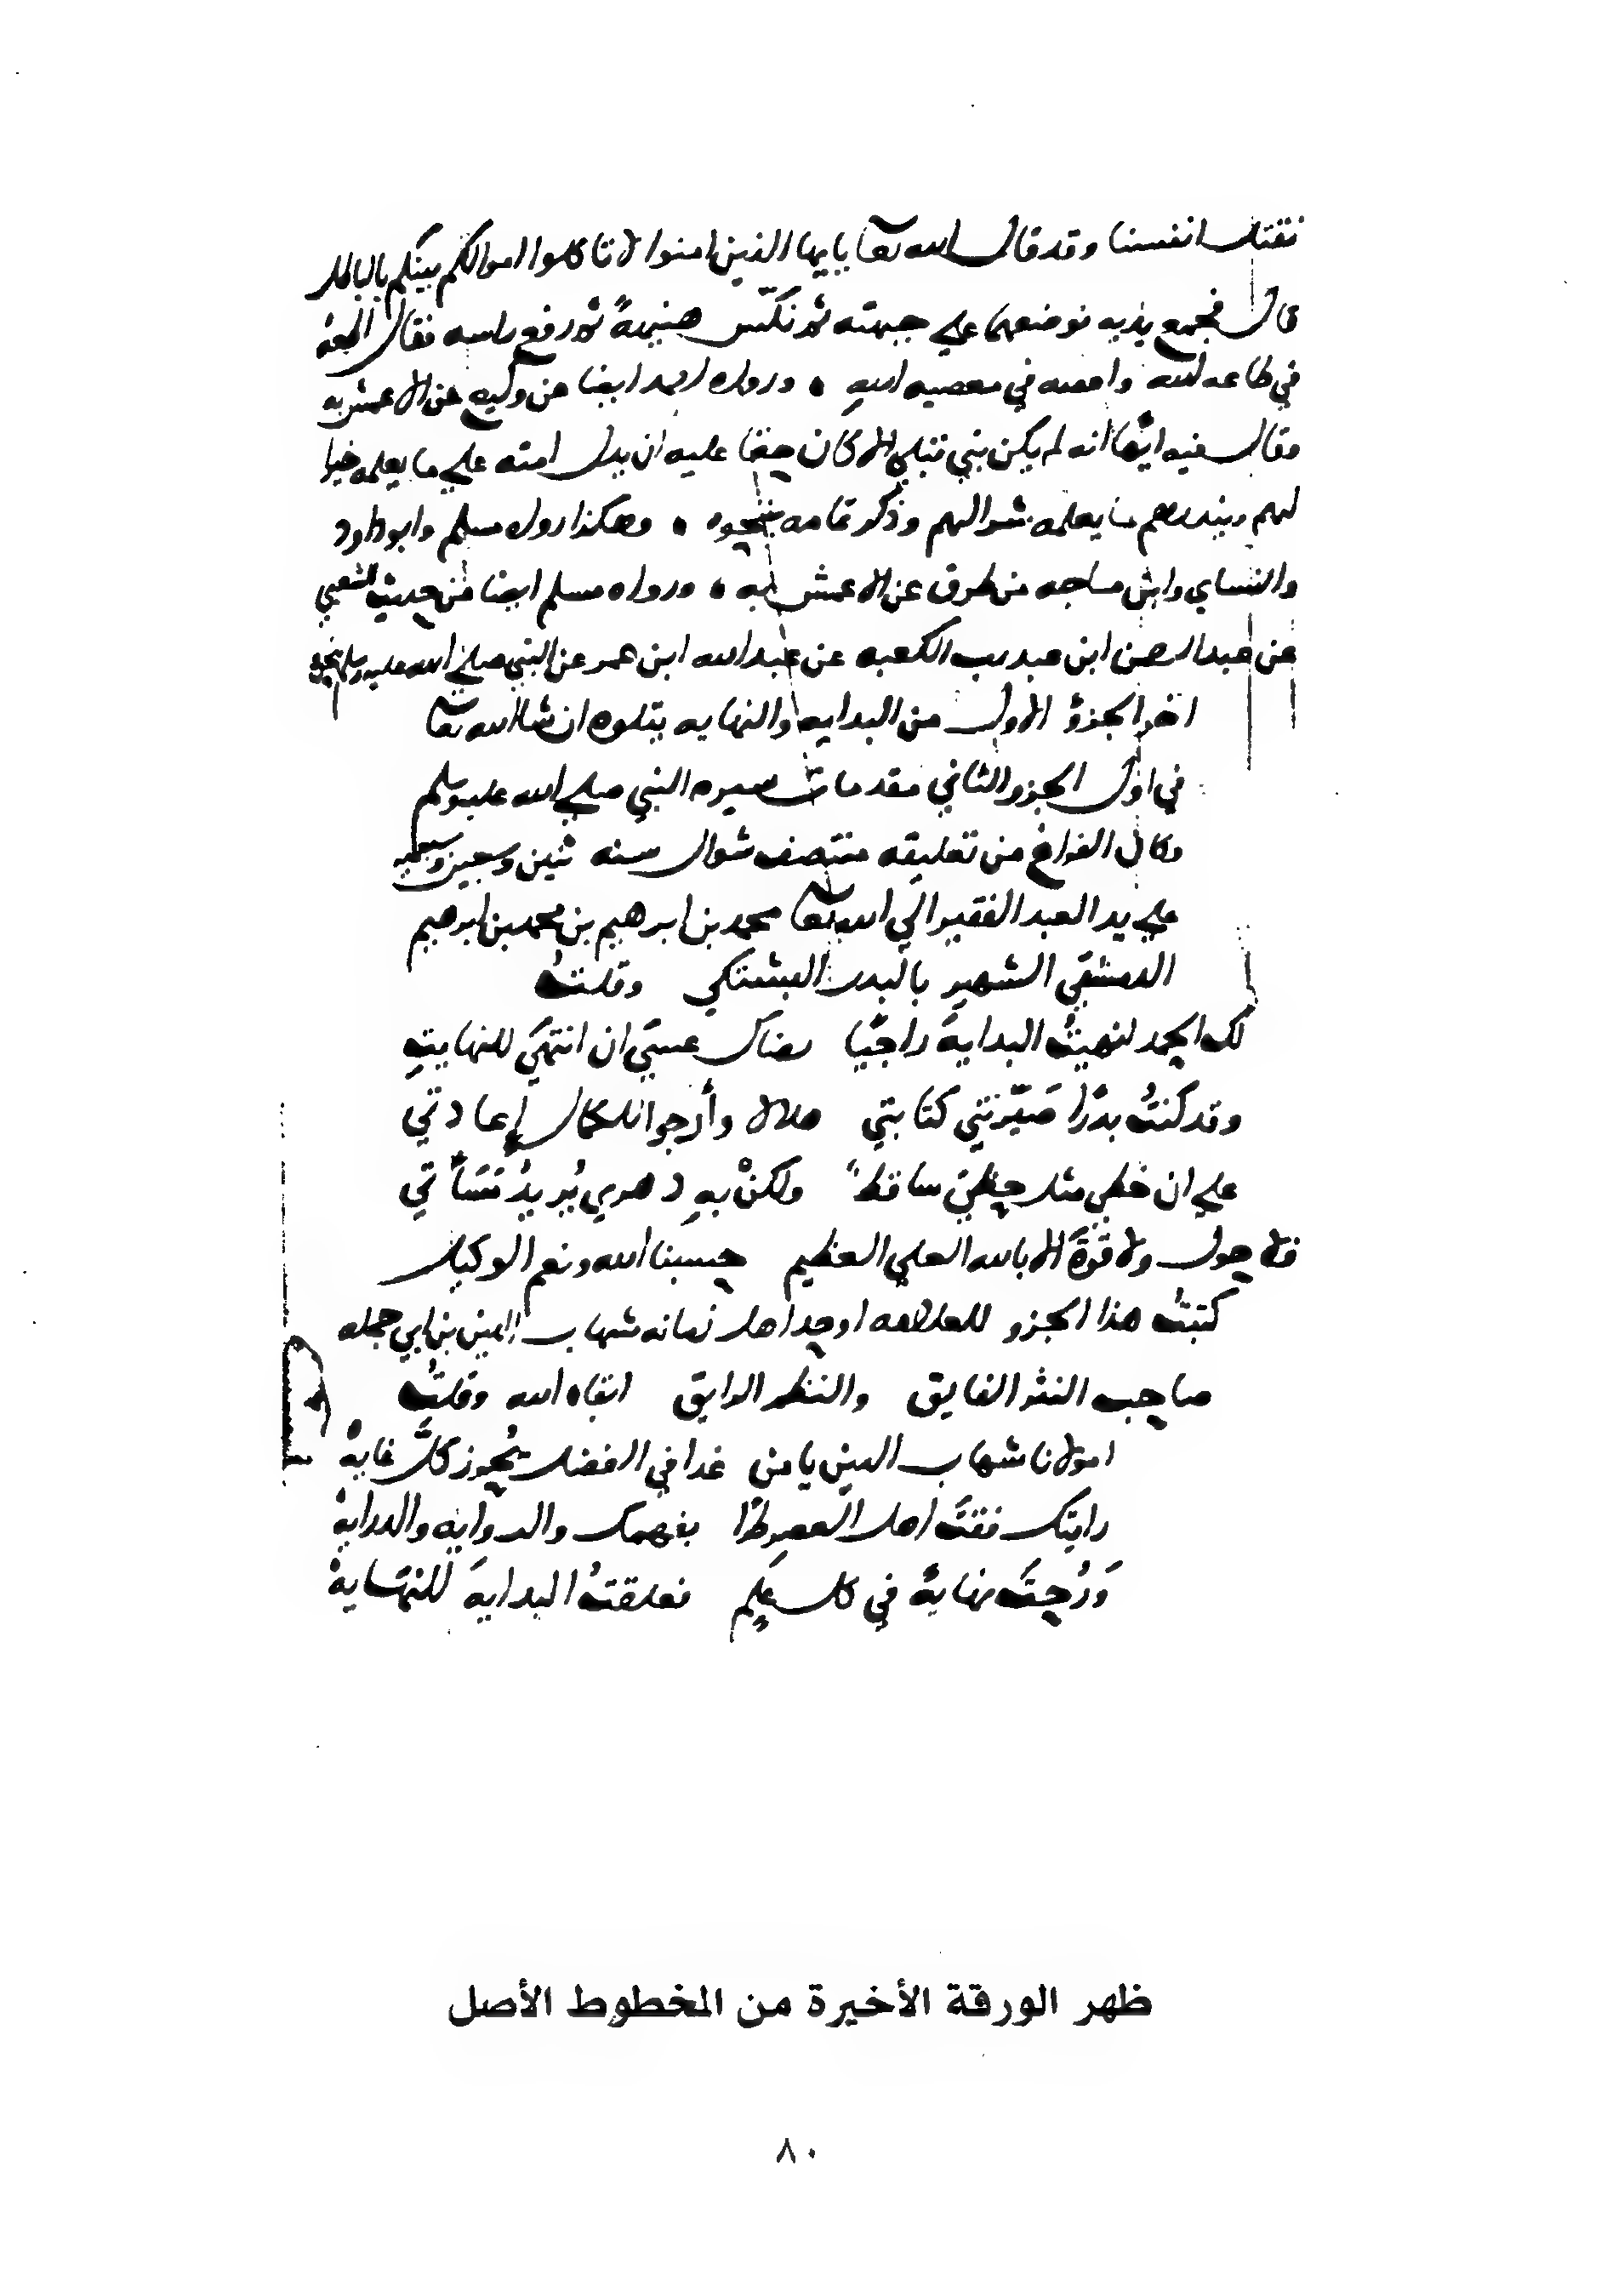 نقتل انفسنا وقد قال الله تعا يايها الذين امنوا لا تاكلوا اموالكم بينكم بالباطل
قال فجمع يديه فوضعهما علي جبهته ثم نكّس هنيهةً ثم رفع راسه فقال اطعه
في طاعه الله واعصه في معصيه اللهِ . ورواه احمد ايضا عن وكيع عن الاعمش به
وقال فيه ايها انه لم يكن نبي قبلي الا كان حقا عليه ان يدل امته علي ما يعلمه خيرا
لهم وينذرهم ما يعلمه شرا لهم وذكر تمامه بنحوه . وهكذا رواه مسلم وابو داود
والنساي وابن ماجه من طرق عن الاعمش به . ورواه مسلم ايضا من حديث الشعبي
عن عبد الرحمن ابن عبد رب الكعبه عن عبد الله ابن عمر عن النبي صلي الله عليه وسلم بنحوه
اخر الجزؤ الاول من البدايه والنهايه يتلوه ان شا الله تعا
في اول الجزو الثاني مقدمات سيره النبي صلي الله عليه وسلم
وكان الفراغ من تعليقه منتصف شوال سنه ثنين وسبعين وسبعمايه
علي يد العبد الفقير الي الله تعا محمد بن ابرهيم بن محمد بن ابرهيم
الدمشقي الشهير بالبدر البشتكي وقلتُ
لك الحمد انهيتُ البدايةَ راجيًا رضاك عسَي ان انتهَي للنهايتِ
وقد كنتُ بدرًا صَيّرتني كتابتي هلالا وأرجوا للكمال إعادتي
علي ان خطي مثل حظيَ ساقطٌ ولكنْ بهِ دهري يُريدُ مَسَأتي
فلا حول ولا قوَّةَ الا بالله العلي العظيم حسبنا الله ونعم الوكيل
كتبتُ هذا الجزو للعلامه اوحد اهل زمانه شهاب الدين بن ابي حجله
صاحب النثر الفايق والنظم الرايق ابقاه الله وقلتُ
امولانا شهاب الدين يا من غدا في الفضل يحُوز كلَّ غايهْ
رايتك فقتَ اهل العصر طرًا بفهمك والروايه والدرايهْ
وَرُحتَ نهايةً في كل عِلم فعلقتُ البدايةَ للنهَايهْ
ظهر الورقة الأخيرة من المخطوط الأصل
٨٠